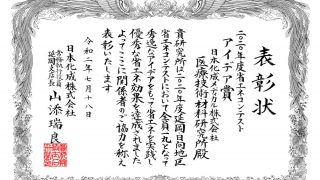 表彰状
二〇二〇年度省エネコンテスト
アイデア賞
日本化成メディカル株式会社
医療技術材料研究所殿
貴研究所は二〇二〇年度延岡日向地区
省エネコンテストにおいて全員一丸となって
秀逸なアイデアをもって省エネを実践し
優秀な省エネ効果を達成されました
よってここに関係者のご協力を称え
表彰いたします
令和二年七月十八日
日本化成株式会社
常務執行役員
延岡支店長
山添瑞良